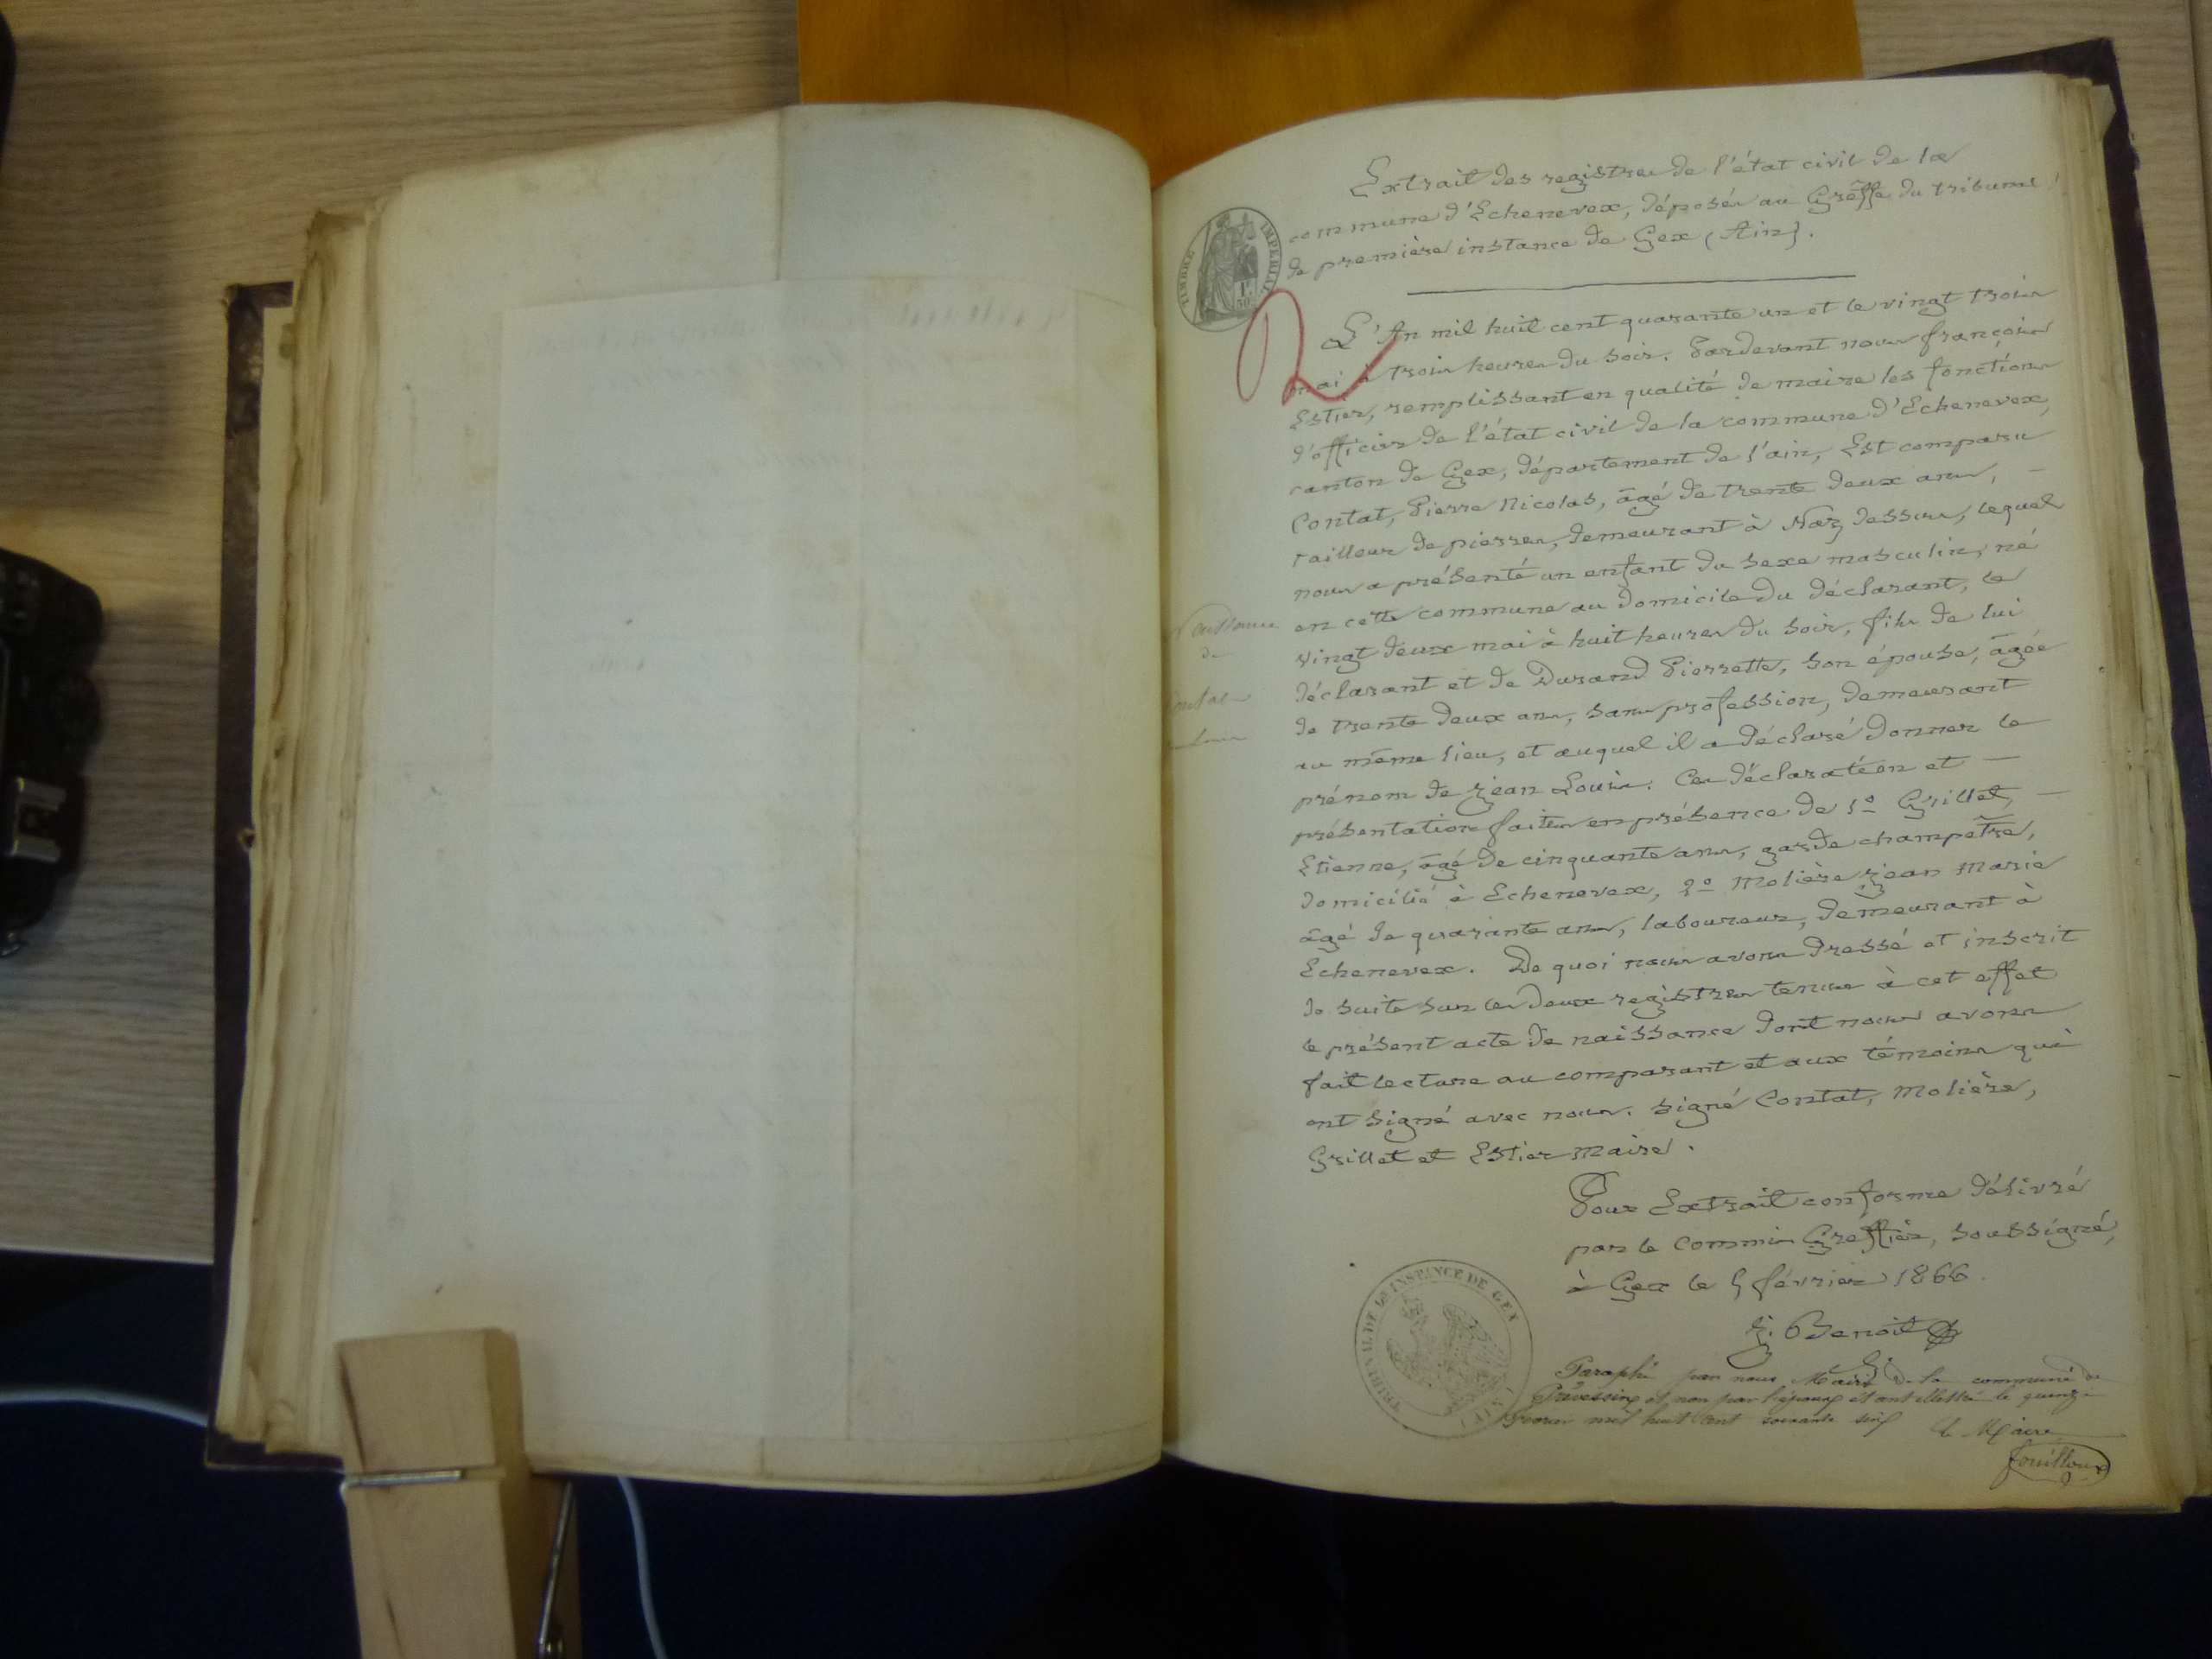 Extrait des registres de l'état civil de la
commune d'Echenevex, déposés au Greffe du tribunal
de première instance de Gex (Ain).
TIMBRE IMPERIAL
L'An mil huit cent quarante un et le vingt trois
mai à trois heures du soir. Pardevant nous françois
Estier, remplissant en qualité de maire les fonctions
d'officier de l'état civil de la commune d'Echenevex,
canton de Gex, département de l'ain, Est comparu
Contat, Pierre Nicolas, âgé de trente deux ans, —
tailleur de pierres, demeurant à Naz dessus, lequel
nous a présenté un enfant du sexe masculin, né
en cette commune au domicile du déclarant, le
vingt deux mai à huit heures du soir, fils de lui
déclarant et de Durand Pierrette, son épouse, âgée
de trente deux ans, sans profession, demeurant
au même lieu, et auquel il a déclaré donner le
prénom de jean Louis. Ces déclaration et —
présentation faites en présence de 1º Grillet, —
Etienne, âgé de cinquante ans, garde champêtre,
domicilié à Echenevex, 2º Molière jean Marie
âgé de quarante ans, laboureur, demeurant à
Echenevex. De quoi nous avons dressé et inscrit
de suite sur les deux registres tenus à cet effet
le présent acte de naissance dont nous avons
fait lecture au comparant et aux témoins qui
ont signé avec nous. signé Contat, Molière,
Grillet et Estier Maire.
Naissance
de
Contat
Louis
Pour Extrait conforme délivré
par le Commis Greffier, soussigné,
à Gex le 5 février 1866.
j. Benoit
TRIBUNAL DE 1re INSTANCE DE GEX (AIN)
Paraphé par nous Maire de la commune de
Prévessin et non par l'époux étant illettré le quinze
février mil huit cent soixante six
le Maire
fouilloux